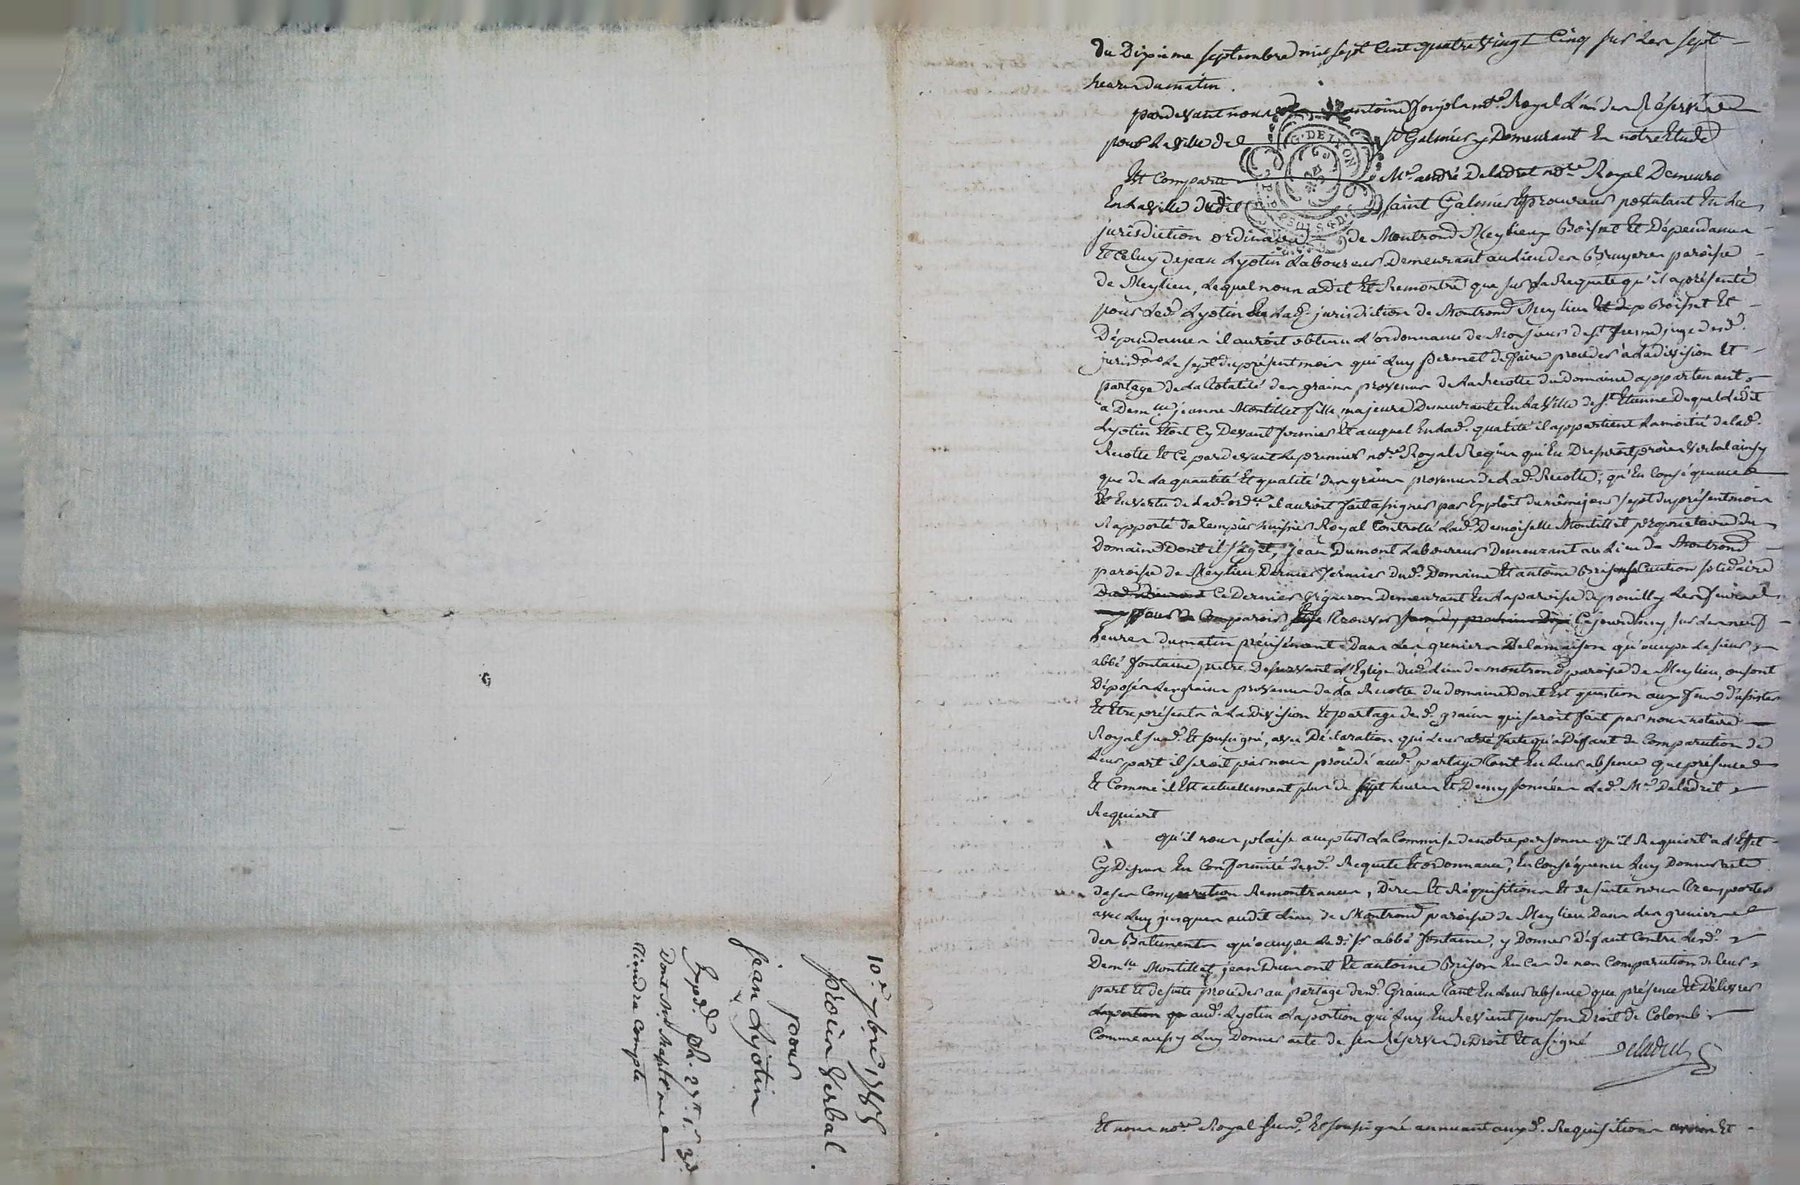 10.e 7bre 1785
procès Verbal.
pour
jean Lyotin
Expd. Ch. 27s. 1s. 3d.
Dont Me
Rendra Compte
Du Dixieme septembre mil sept Cent quatre Vingt Cinq sur Les sept
heures du matin.
pardevant nous antoine No.re Royal L'un des Réservés
pour La Ville de St Galmier y Demeurant En notre Etude
G. DE LYON
Est Comparu Me andré Deladret no.re Royal Demeurt
En La Ville dudit saint Galmier Et procureur postulant En La
jurisdiction ordinaire de Montrond Meylieu Boisset Et Dépendances
Et Celuy de jean Lyotin Laboureur Demeurant au Lieu des Bruyeres paroisse
de Meylieu, Lequel nous a dit Et Remontré que sur La Requete qu'il a présenté
pour Led. Lyotin En Lad. jurisdiction de Montrond Meylieu Boisset Et
Dépendances il auroit obtenu L'ordonnance de Monsieur de juge de lad.
jurid.on Le sept du présent mois qui Luy permet de faire procéder à La division Et
partage de La totalité des grains provenus de La Recolte du domaine appartenant
à Dem.lle jeanne Montillet fille majeure Demeurante En La Ville de St Etienne Duquel Ledit
Lyotin Etoit Cy Devant fermier Et auquel En Lad. qualité il appartient La moitié de lad.
Recolte Et Ce pardevant Le premier no.re Royal Requis qui En Dresseroit procès Verbal ainsy
que de La quantité Et qualité des grains provenus de Lad. Recolte; qu'En Conséquence
Et En vertu de Lad. ord.ce il auroit fait assigner par Exploit du même jour sept du présent mois
Rapporté de Tempier huissier Royal Controllé Lad. Demoiselle Montillet propriétaire du
Domaine Dont il s'agit, jean Dumont Laboureur Demeurant au Lieu de Montrond
paroisse de Meylieu Dernier fermier dud. Domaine Et antoine Brison Caution solidaire
Dud. Dumont Ce Dernier Vigneron Demeurant En La paroisse de pouilly Les feurs
pour Comparoir Et se trouver Cejourd'huy, sur Les neuf
heures du matin précisément Dans Les greniers De la maison qu'occupe Le sieur
abbé fontaine, pretre desservant L'Eglise dud. Lieu de montrond, paroisse de Meylieu, ou sont
Déposés Les grains provenus de La Recolte du domaine Dont Est question aux fins d'assister
Et Etre présents à La Division Et partage desd. grains qui seroit fait par nous notaire
Royal susd. Et soussigné, avec Déclaration qui Leur a été faite qu'a Défaut de Comparution de
Leur part il seroit par nous procédé aud. partage tant En Leur absence que présence
Et Comme il Est actuellement plus de sept heures Et Demy sonnées Led. Me Deladret
Requiert
qu'il nous plaise accepter La Commise de notre personne qu'il Requiert a L'Effet
Cy Dessus En Conformité desd. Requete Et ordonnance, En Conséquence Luy Donner acte
de ses Comparution Remontrances, Dires Et Réquisitions Et de suite nous Transporter
avec Luy jusques audit Lieu de Montrond paroisse de Meylieu Dans Les greniers
des Batiments qu'occupe Led. Sr abbé fontaine, y Donner Défaut Contre Lesd.
Dem.lle Montillet, jean Dumont Et antoine Brison En Cas de non Comparution de Leur
part Et de suite procéder au partage desd. Grains tant En Leur absence que présence Et Délivrer
aud. Lyotin La portion qui Luy En Revient pour son Droit de Colomb
Comme aussy Luy Donner acte de ses Réserves de Droit Et a signé
Deladret
Et nous no.re Royal susd. Et soussigné annuant auxd. Requisitions Et